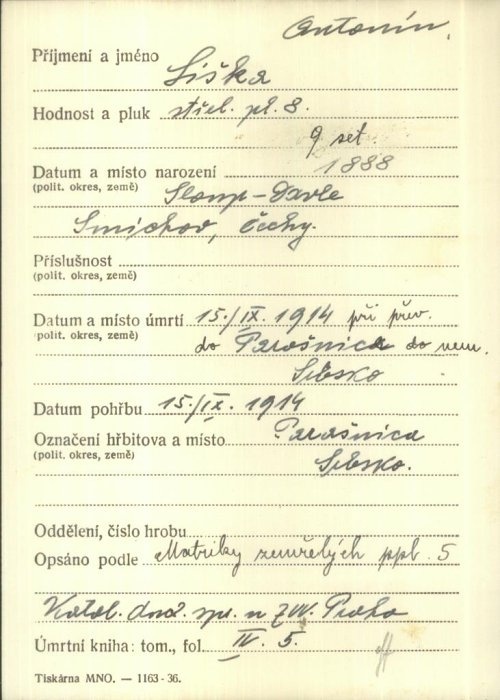 Antonín.
Příjmení a jméno Liška
Hodnost a pluk střel. pl. 8.
9 set.
Datum a místo narození 1888
(polit. okres, země) Sloup-Davle
Smíchov, Čechy.
Příslušnost
(polit. okres, země)
Datum a místo úmrtí 15./IX. 1914 při přev.
(polit. okres, země) do Parašnica do nem.
Srbsko
Datum pohřbu 15./IX. 1914
Označení hřbitova a místo Parašnica
(polit. okres, země) Srbsko.
Oddělení, číslo hrobu
Opsáno podle Matriky zemřelých ppl. 5
Katol. duch. sp. u ZVV. Praha
Úmrtní kniha: tom., fol. IV. 5.
Tiskárna MNO. — 1163-36.